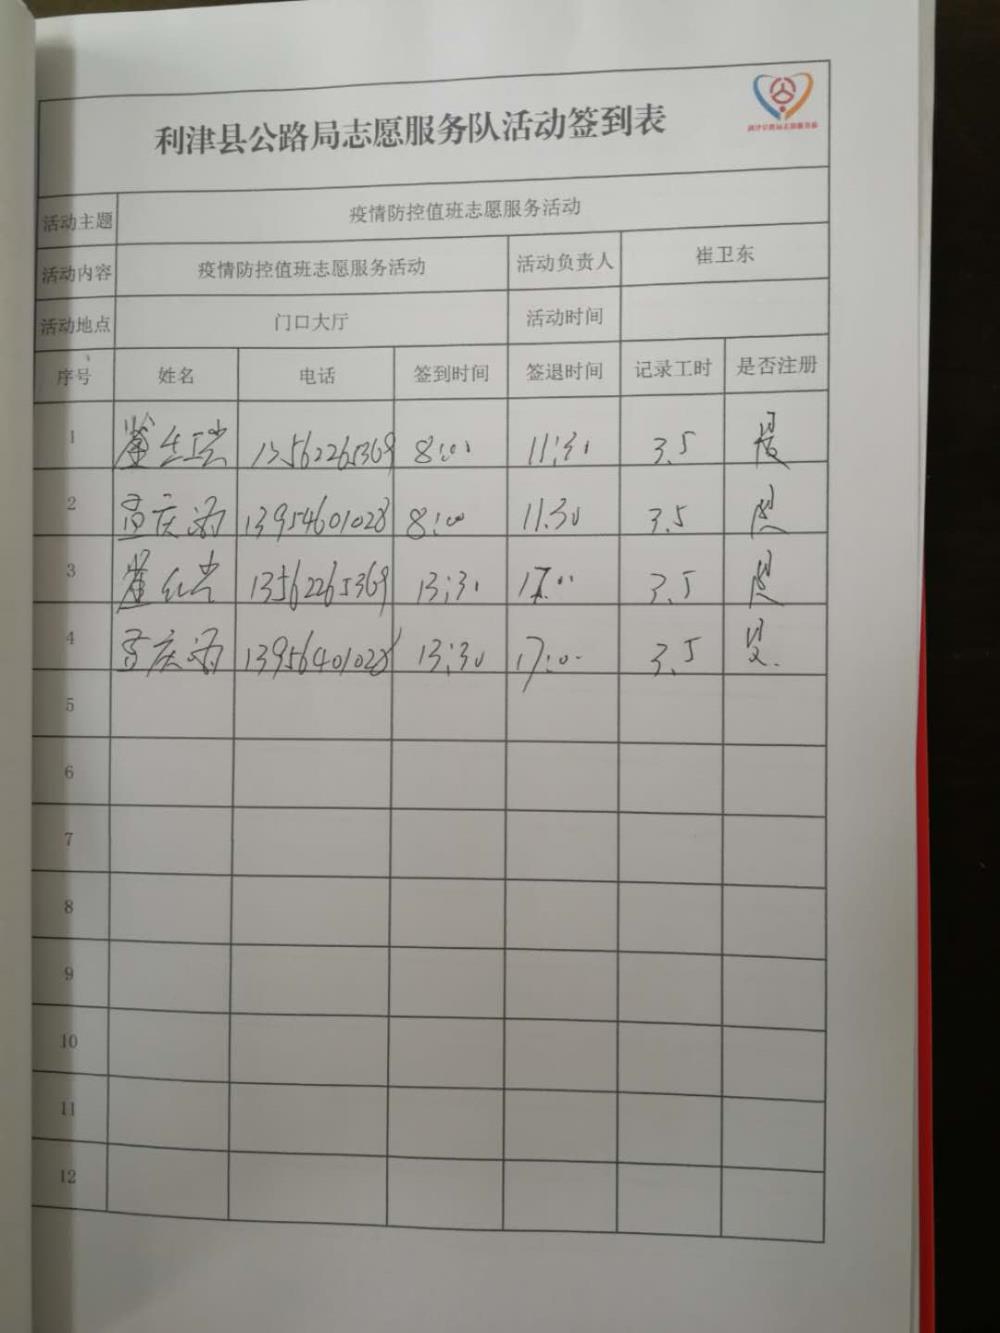 利津县公路局志愿服务队活动签到表
利津县公路局志愿服务队
活动主题 疫情防控值班志愿服务活动
活动内容 疫情防控值班志愿服务活动 活动负责人 崔卫东
活动地点 门口大厅 活动时间
序号 姓名 电话 签到时间 签退时间 记录工时 是否注册
1 13562265369 8:00 11:30 3.5 是
2 孟庆 13954601028 8:00 11:30 3.5 是
3 13562265369 13:30 17:00 3.5 是
4 孟庆 13956401028 13:30 17:00 3.5 是
5
6
7
8
9
10
11
12